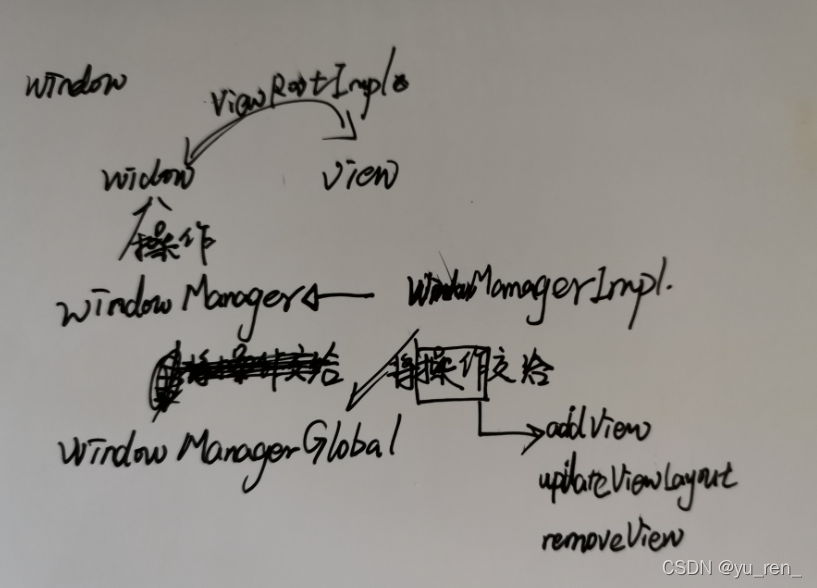 Window
ViewRootImpl
Widow
View
操作
Window Manager
WindowManagerImpl.
将操作交给
将操作交给
Window ManagerGlobal
addView
updateViewLayout
removeView
CSDN @yu_ren_